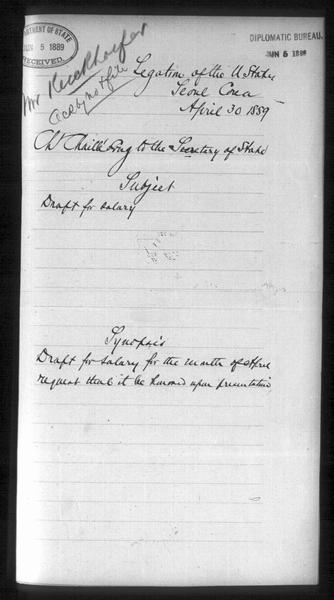 DEPARTMENT OF STATE
JUN 5 1889
RECEIVED
DIPLOMATIC BUREAU,
JUN 5 1889
Mr
ack by not & file
Legation of the U States
Seoul Corea
April 30 1889
Ch Chaillé Long to the Secretary of State
Subject
Draft for salary
Synopsis
Draft for salary for the month of April
request that it be honored upon presentation